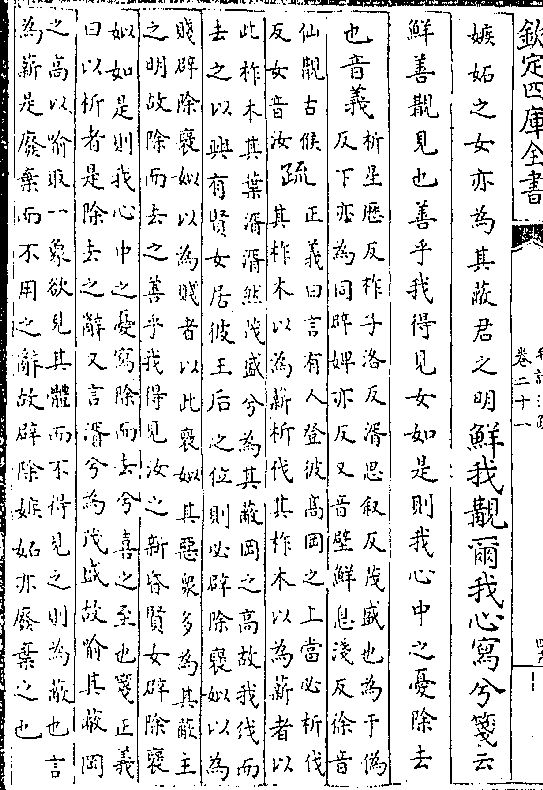 欽定四庫全書
卷二十一
嫉妬之女亦為其蔽君之明鮮我覯爾我心寫兮箋云
鮮善覯見也善乎我得見女如是則我心中之憂除去
也音義
析星歷反柞子洛反湑思叙反茂盛也為于偽
反下亦為同辟婢亦反又音壁鮮息淺反徐音
仙覯古候
反女音汝
疏
正義曰言有人登彼高岡之上當必析伐
其柞木以為薪析伐其柞木以為薪者以
此柞木其葉湑湑然茂盛兮為其蔽岡之高故我伐而
去之以興有賢女居彼王后之位則必辟除襃姒以為
賤辟除襃姒以為賤者以此襃姒其惡衆多為其蔽主
之明故除而去之善乎我得見汝之新昏賢女辟除襃
姒如是則我心中之憂寫除而去兮喜之至也箋正義
曰以析者是除去之辭又言湑兮為茂盛故喻其蔽岡
之高以喻取一象欲見其體而不得見之則為蔽也言
為薪是廢棄而不用之辭故辟除嫉妬亦廢棄之也